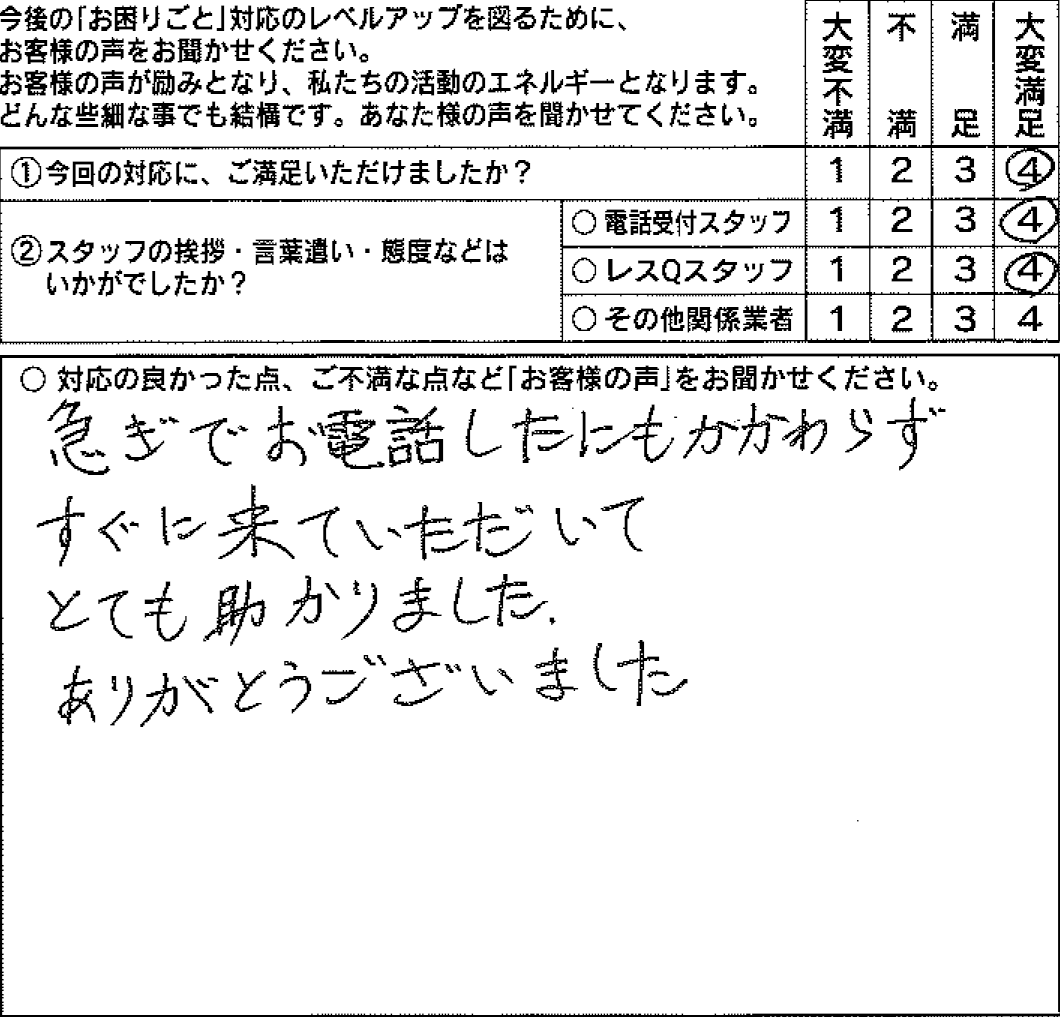 今後の「お困りごと」対応のレベルアップを図るために、
お客様の声をお聞かせください。
お客様の声が励みとなり、私たちの活動のエネルギーとなります。
どんな些細な事でも結構です。あなた様の声を聞かせてください。
大変不満 不満 満足 大変満足
①今回の対応に、ご満足いただけましたか？ 1 2 3 4
②スタッフの挨拶・言葉遣い・態度などは
いかがでしたか？
○電話受付スタッフ 1 2 3 4
○レスQスタッフ 1 2 3 4
○その他関係業者 1 2 3 4
○ 対応の良かった点、ご不満な点など「お客様の声」をお聞かせください。
急ぎでお電話したにもかかわらず
すぐに来ていただいて
とても助かりました.
ありがとうございました